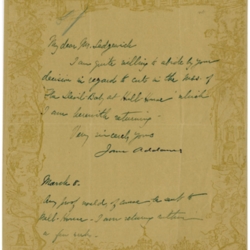 My dear Mr. Sedgwick
I am quite willing to abide by your
decision in regard to cuts in the mss. of
"The Devil Baby at Hull-House" which
I am herewith returning.
Very sincerely yours
Jane Addams
March 8.
Any proof would of course be sent to
Hull-House. I am
a few